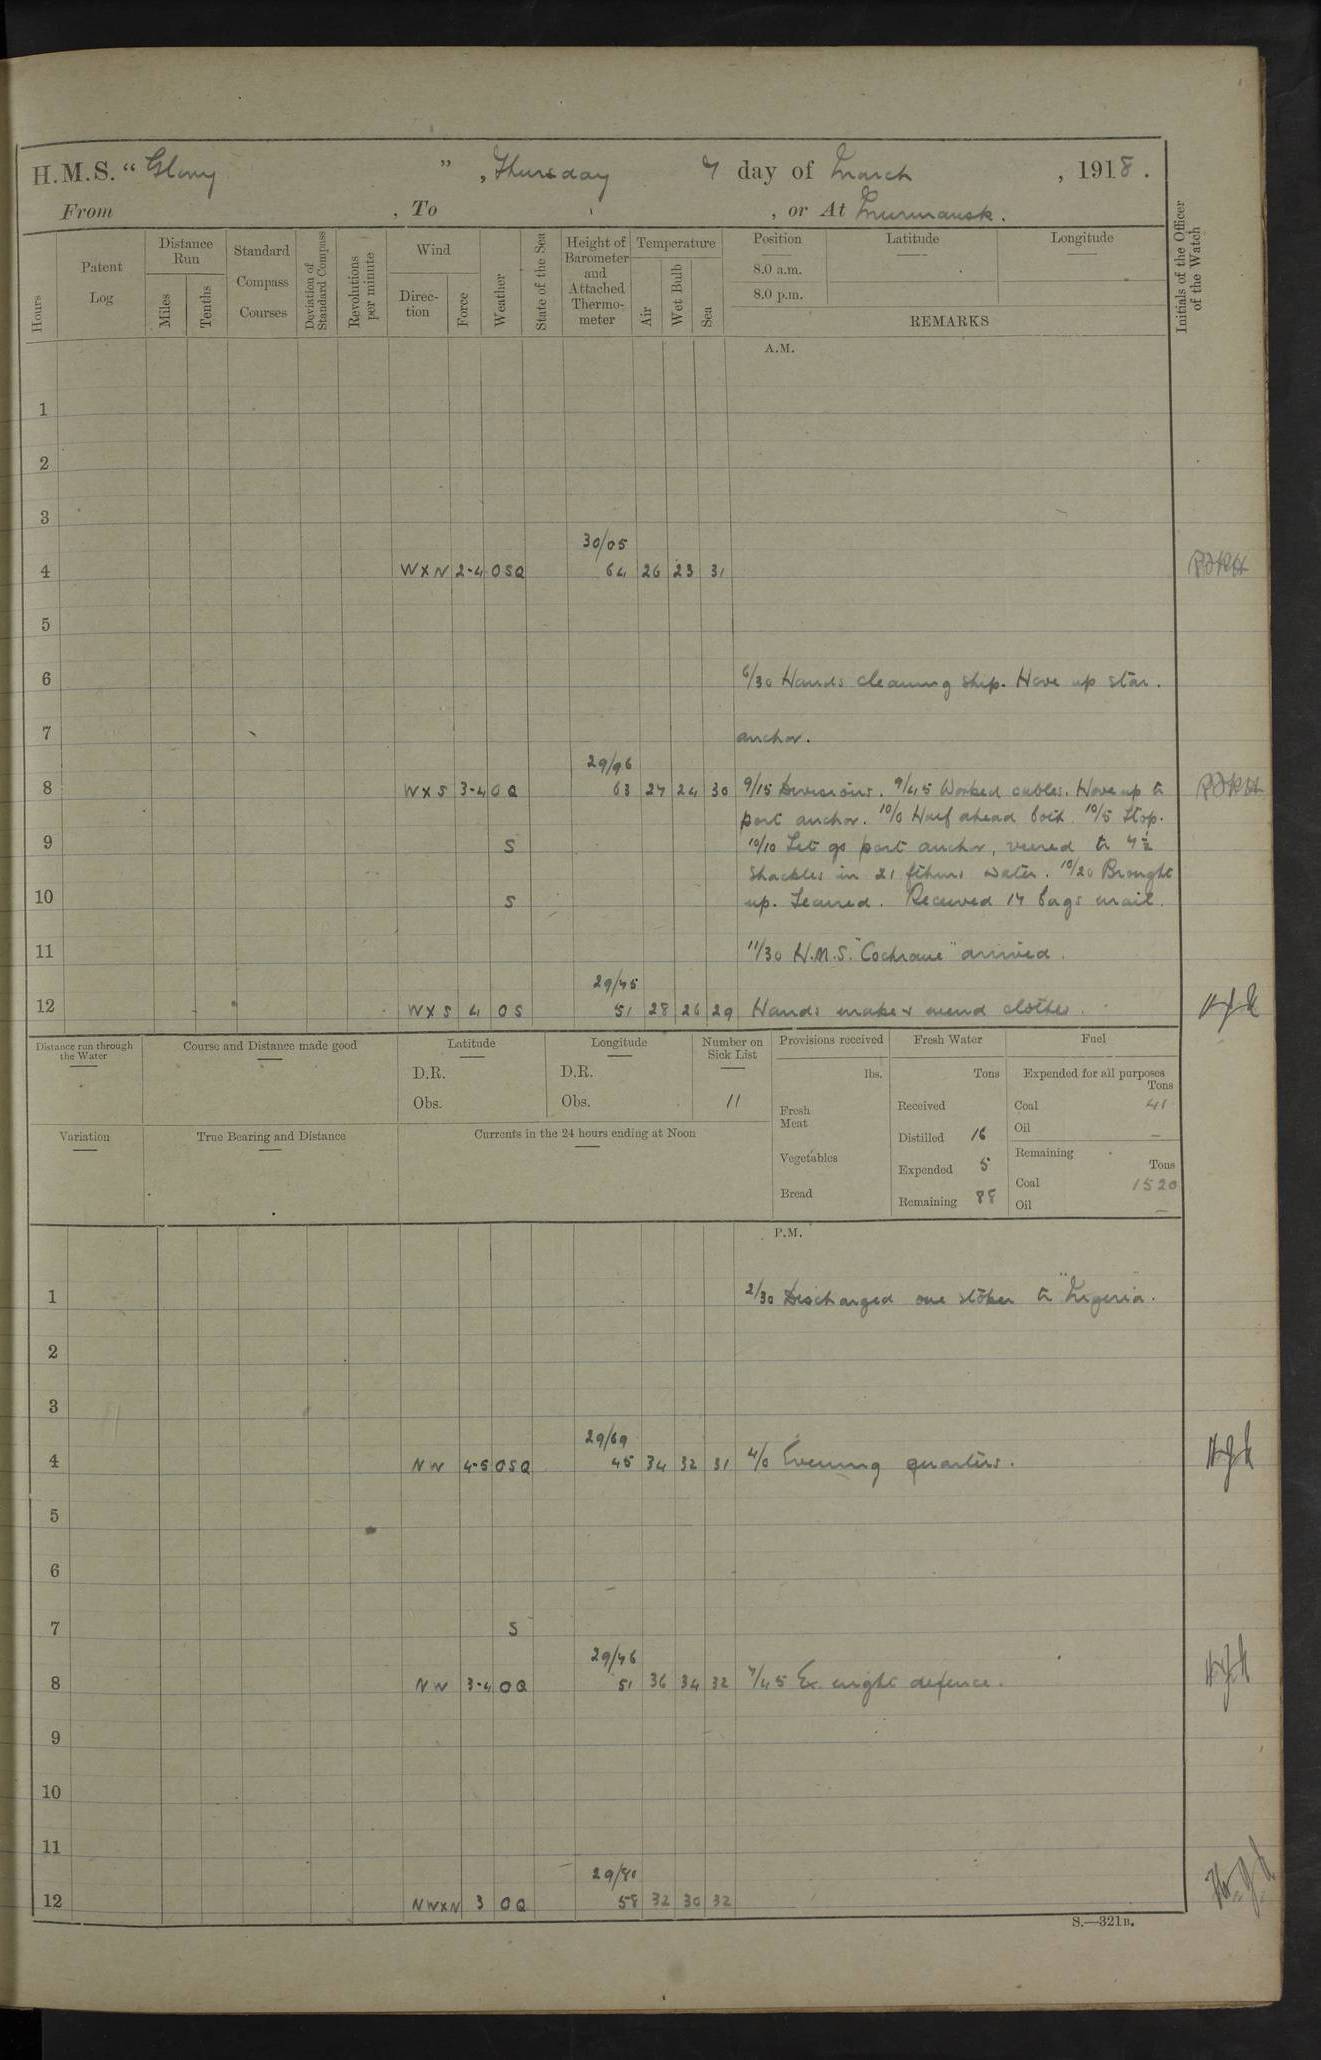 H.M.S. "Glory", Thursday 7 day of March, 1918.
From , To , or At Murmansk.
Hours
Patent Log
Distance Run
Miles
Tenths
Standard Compass Courses
Deviation of Standard Compass
Revolutions per minute
Wind
Direction
Force
Weather
State of the Sea
Height of Barometer and Attached Thermometer
Temperature
Air
Wet Bulb
Sea
Position
Latitude
Longitude
8.0 a.m.
8.0 p.m.
REMARKS
Initials of the Officer of the Watch
A.M.
1
2
3
30/05
4 WXN 2-4 OSQ 64 26 23 31
5
6 6/30 Hands cleaning ship. Hove up star.
7 anchor.
29/96
8 WXS 3-4 OQ 63 27 24 30 9/15 Divisions. 9/45 Worked cables. Hove up to
port anchor. 10/0 Half ahead both. 10/5 Stop.
9 S 10/10 Let go port anchor, veered to 7½
shackles in 21 fthms water. 10/20 Brought
10 S up. Secured. Received 17 bags mail.
11 11/30 H.M.S. "Cochrane" arrived.
29/75
12 WXS 4 OS 51 28 26 29 Hands make & mend clothes.
Distance run through the Water
Course and Distance made good
Latitude
D.R.
Obs.
Longitude
D.R.
Obs.
Number on Sick List
11
Provisions received
lbs.
Fresh Meat
Vegetables
Bread
Fresh Water
Tons
Received
Distilled 16
Expended 5
Remaining 88
Fuel
Expended for all purposes
Tons
Coal 41
Oil —
Remaining
Tons
Coal 1520
Oil —
Variation
True Bearing and Distance
Currents in the 24 hours ending at Noon
P.M.
1 2/30 Discharged one stoker to "Nigeria".
2
3
29/69
4 NW 4-5 OSQ 45 34 32 31 4/0 Evening quarters.
5
6
7 S
29/76
8 NW 3-4 OQ 51 36 34 32 7/45 Ex. night defence.
9
10
11
29/81
12 NWXN 3 OQ 58 32 30 32
S.—321B.